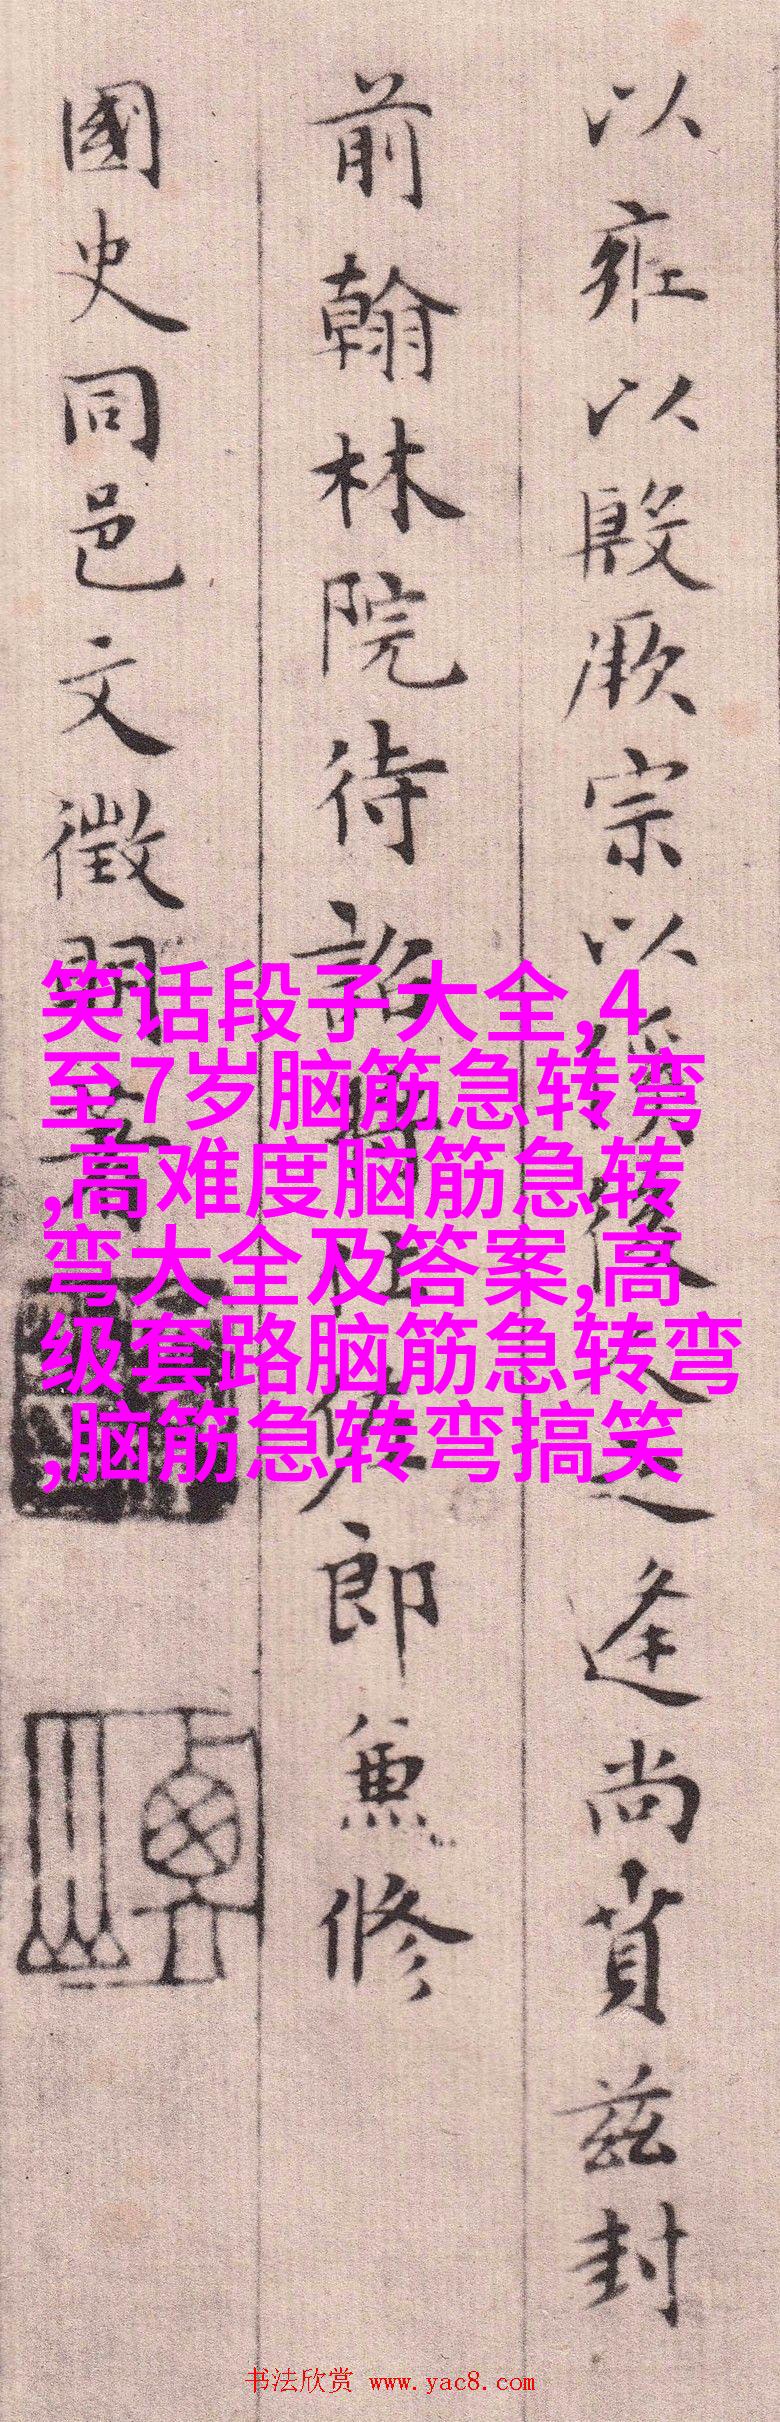 以雍以殷厥宗以後人之逢尚賁茲封
前翰林院待詔將仕佐郎兼修
國史同邑文徵明書
笑话段子大全,4
至7岁脑筋急转弯
,高难度脑筋急转
弯大全及答案,高
级套路脑筋急转弯
,脑筋急转弯搞笑
书法欣赏 www.yac8.com